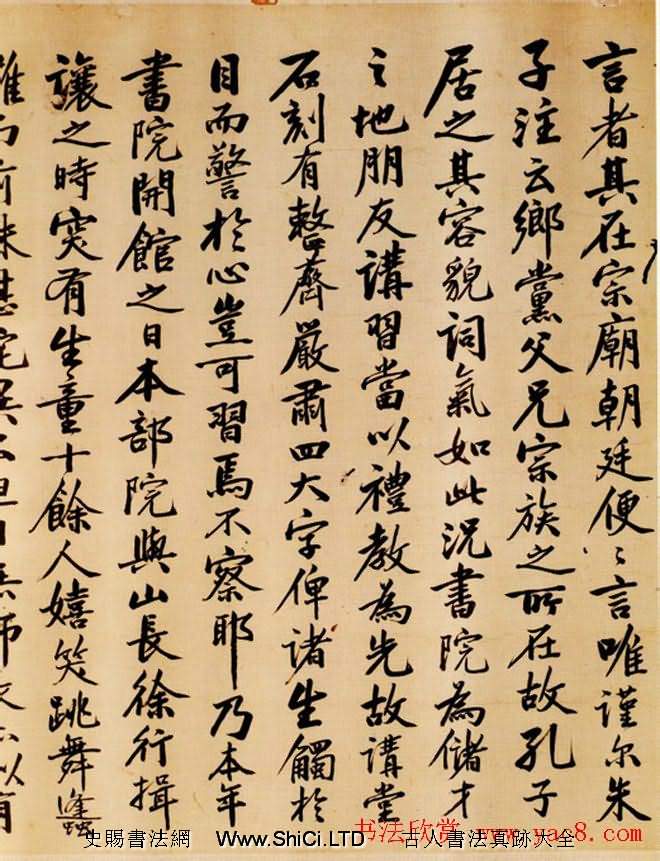 言者其在宗廟朝廷便〻言唯謹尔朱
子注云鄉黨父兄宗族之所在故孔子
居之其容貌詞氣如此況書院為儲才
之地朋友講習當以禮教為先故講堂
石刻有整齊嚴肅四大字俾諸生觸於
目而警於心豈可習焉不察耶乃本年
書院開館之日本部院與山長徐行揖
讓之時突有生童十餘人嬉笑跳舞
史賜書法網 Www.ShiCi.LTD 古人書法真跡大全
书法欣赏